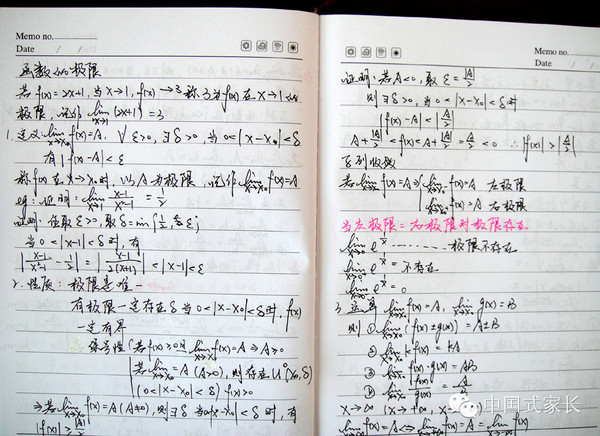 Memo no.
Date / /
函数的极限
若f(x)=2x+1, 当x→1, f(x)→3 称3为f(x)在x→1 的
极限, 记作 lim x→1 (2x+1)=3
1. 定义: lim x→x₀ f(x)=A. ∀ε>0, ∃δ>0, 当0<|x-x₀|<δ
有|f(x)-A|<ε
称f(x)在x→x₀时, 以A为极限, 记作 lim x→x₀ f(x)=A
eg: 证明: lim x→1 (x-1)/(x²-1) = 1/2
证明: 任取ε>0, 取δ=min{1/2, ε}
当0<|x-1|<δ时, 有
|(x-1)/(x²-1) - 1/2| = |(x-1)/(2(x+1))| < |x-1|<ε
2. 性质: 极限是唯一
有极限一定存在δ 当0<|x-x₀|<δ时, f(x)
一定有界
保号性 若f(x)≥0且 lim x→x₀ f(x)=A ⇒ A≥0
若 lim x→x₀ =A (A>0), 则存在U⁰(x₀,δ)
(0<|x-x₀|<δ) f(x)>0
⇒若 lim x→x₀ f(x)=A(A≠0), 则∃δ 当0<|x-x₀|<δ时, 有
|f(x)|>|A/2|
Memo no.
Date / /
证明: 若A<0, 取ε=|A|/2
则∃δ>0, 当0<|x-x₀|<δ时
|f(x)-A|<|A|/2
A+|A|/2 <f(x)<A+|A|/2 = A/2 <0 ∴|f(x)|>|A/2|
若 lim x→x₀ f(x)=A ⇒ lim f(x)=A 左极限
lim f(x)=A 右极限
当左极限=右极限时极限存在
lim e^(1/x) ········ 极限不存在
lim e^(1/x) = 不存在
lim e^(1/x) = 0
3. lim x→x₀ f(x)=A, lim x→x₀ g(x)=B
则 ① lim x→x₀ (f(x)±g(x)) = A±B
② lim x→x₀ kf(x) = kA
③ lim x→x₀ f(x)·g(x) = AB
④ lim x→x₀ f(x)
x→∞
lim f(x)=A ⇔ lim f(x)=A= lim f(x)
中国式家长